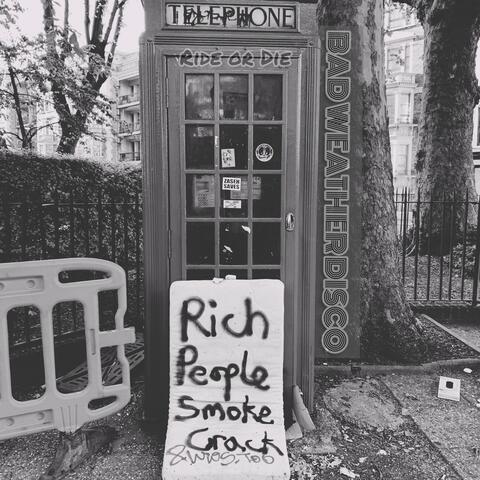 TELEPHONE
RIDE OR DIE
BADWEATHERDISCO
ZASED
SAVES
Rich
People
Smoke
Crack